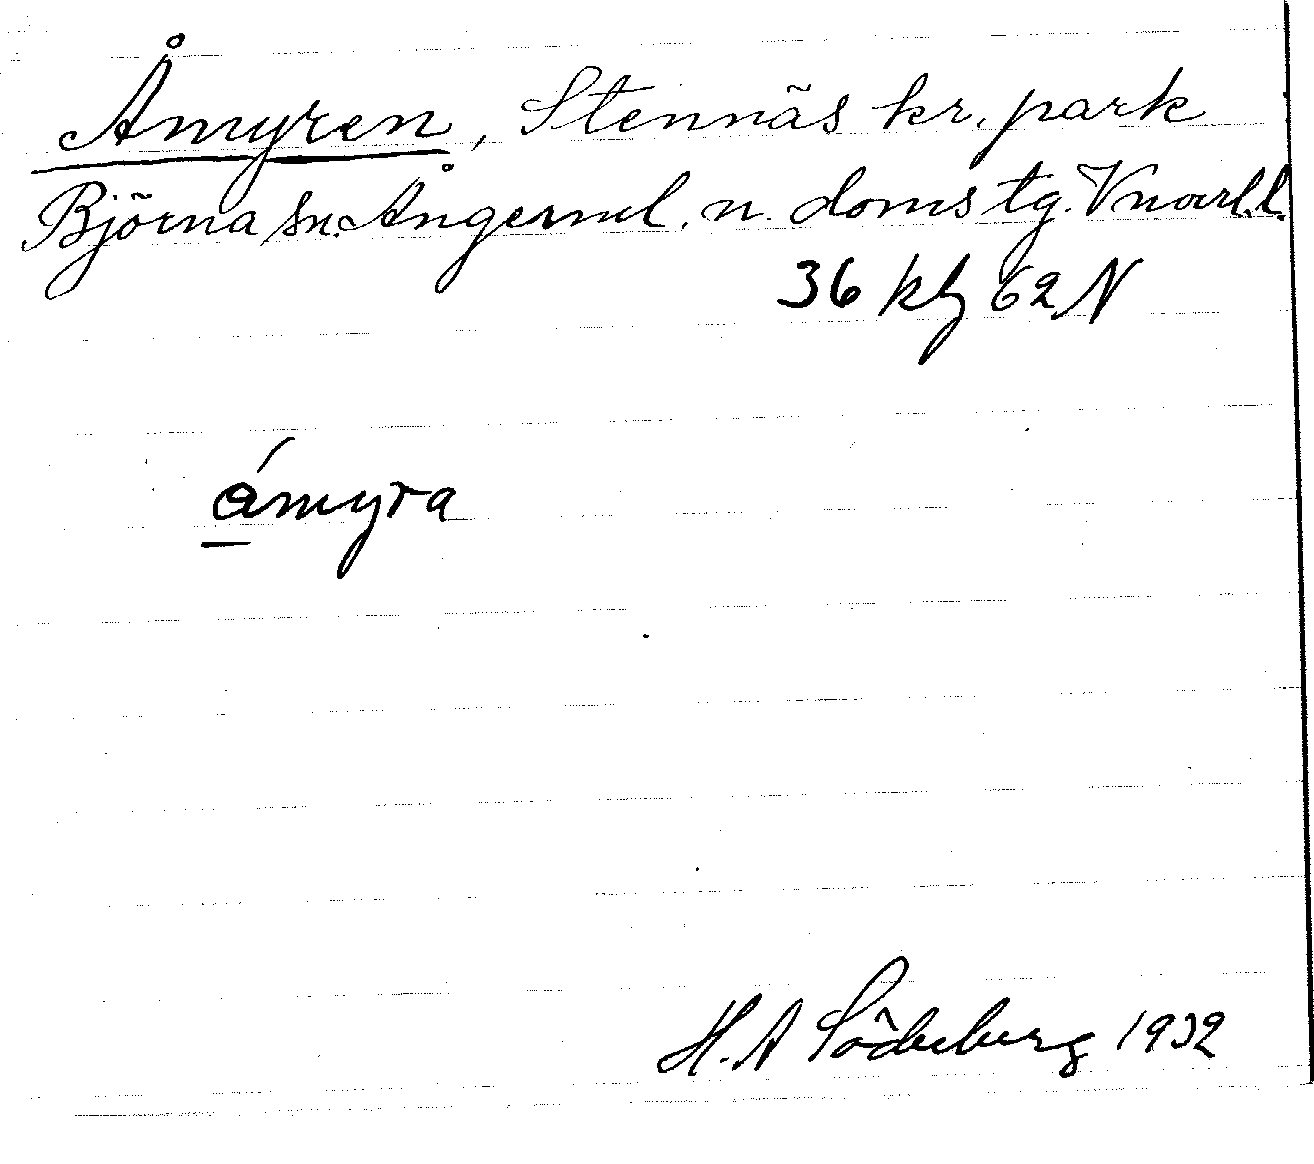 Åmyren, Stennäs kr. park
Björna sn. Ångerml. n. doms tg. Vnorl.l.
36 kh 62 N
ámyra
H. A Söderberg 1932